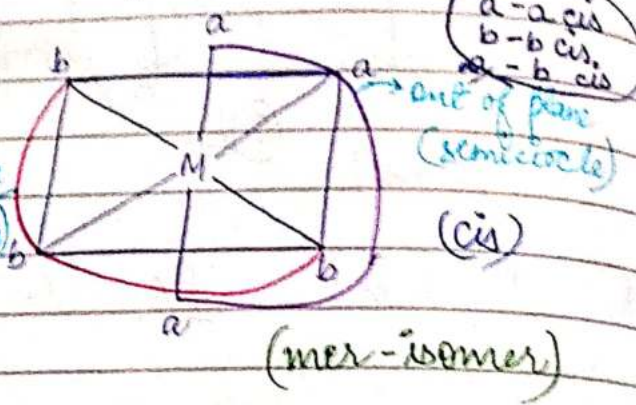 a-a cis
b-b cis
a-b cis
a
b
a
→ out of plane
(semicircle)
M
(cis)
b
b
a
(mer-isomer)